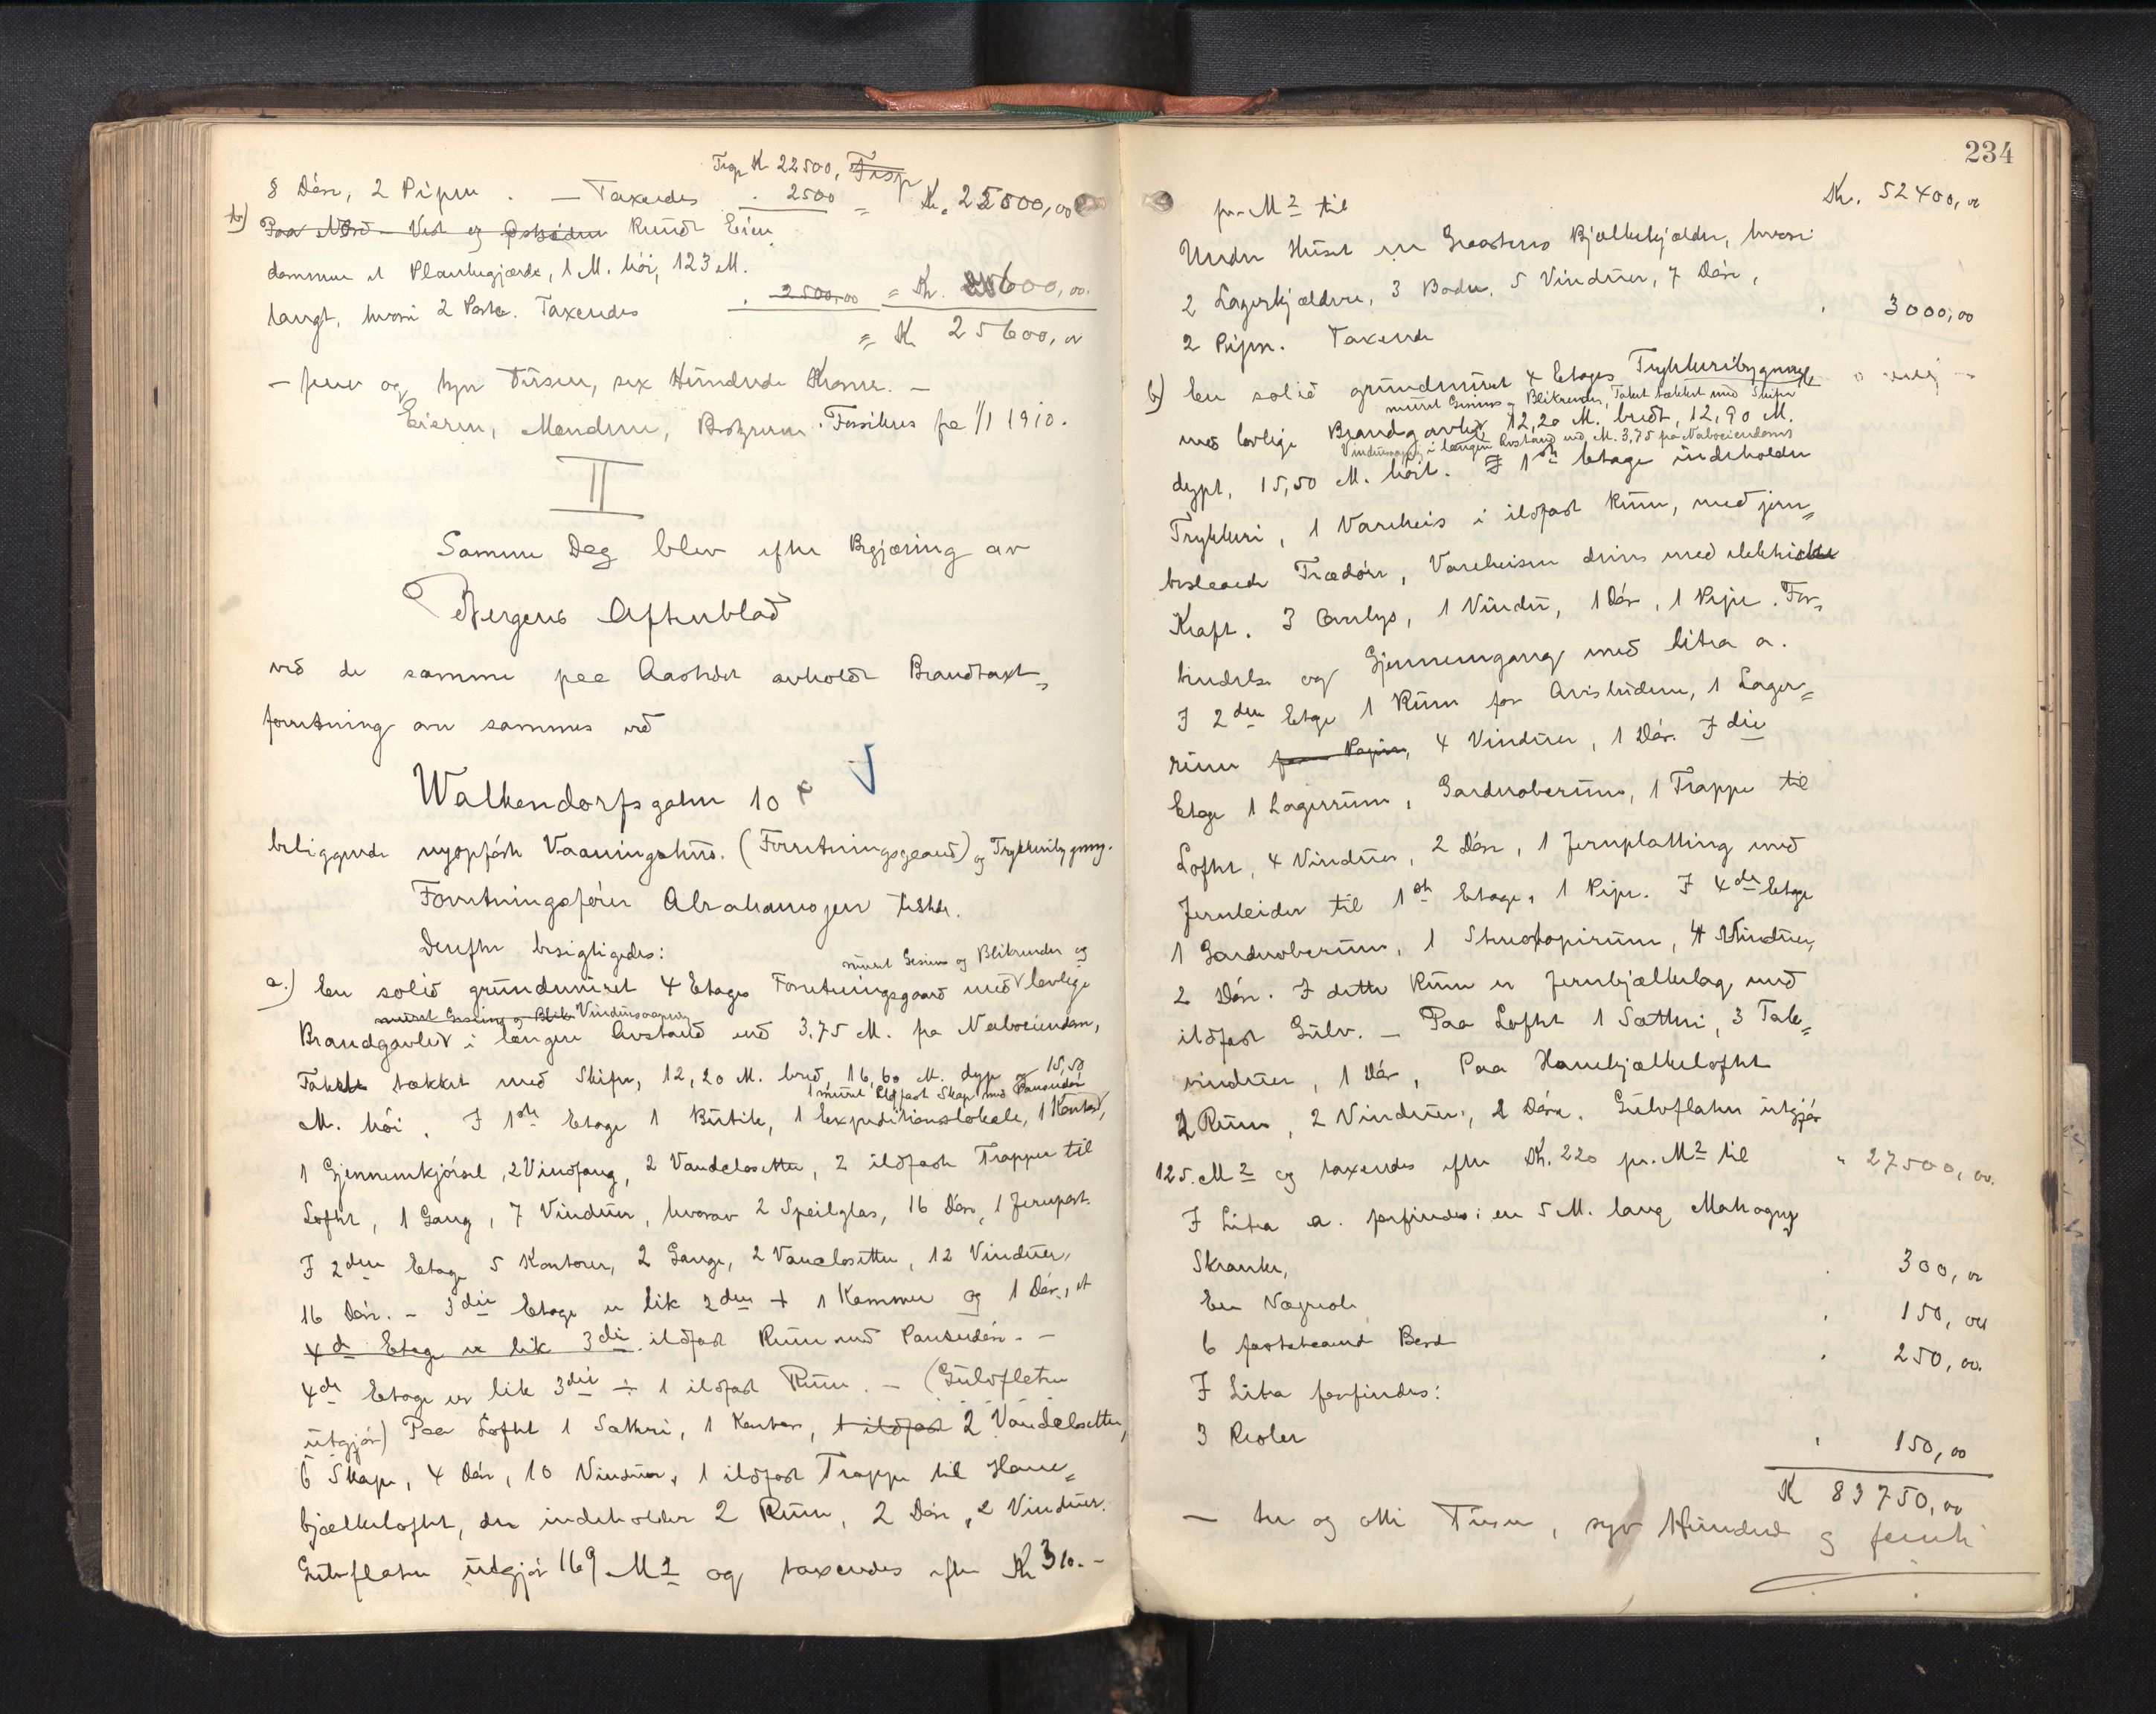 Trap Kr 22500, Trap
8 Döre, 2 Piper. — Taxeredes . 2500 = Kr. 22500,00
b) Paa Nord- Vest og Østsiden Rundt Eien
dommen et Plankegjærde, 1 M. høi, 123 M.
langt, hvori 2 Porte. Taxeredes . 2500,00 = Kr. 600,00.
= Kr 25600,00
— fem og tyve Tusen, sex Hundrede Kroner. —
Eieren, Menden, Forsikres fra 1/1 1910.
II
Samme Dag blev efter Begjæring av
Bergens Aftenblad
ved de samme paa Aastedet avholdt Brandtaxt-
forretning over sammes ved
Walkendorfsgaten 10
beliggende nyopført Vaaningshus. (Forretningsgaard) og Trykkeribygning.
Forretningsfører Abrahamsen tilstede.
Derefter besigtigedes:
muret Gesims og Blikrender og
a.) En solid grundmuret 4 Etages Forretningsgaard med lovlige
muret Gesims og Blik Vinduesaapning
Brandgavler i længere Avstand end 3,75 M. fra Naboeiendom,
Taket tækket med Skifer, 12,20 M. bred, 16,60 M. dyp og 15,50
1 muret Ildfast Skap med Pansredør
M. høi. I 1ste Etage 1 Butik, 1 Expeditionslokale, 1 Kontor,
1 Gjennemkjørsel, 2 Vindfang, 2 Vandclosetter, 2 ildfaste Trapper til
Loftet, 1 Gang, 7 Vinduer, hvorav 2 Speilglas, 16 Døre, 1 Jernport.
I 2den Etage 5 Kontorer, 2 Gange, 2 Vanclosetter, 12 Vinduer,
16 Døre. - 3die Etage er lik 2den + 1 Kammer og 1 Dør, et
4de Etage er lik 3die ildfast Rum med Pansredør. —
4de Etage er lik 3die ÷ 1 ildfast Rum. — (Gulvflaten
utgjør) Paa Loftet 1 Sætteri, 1 Kontor, 1 ildfast 2 Vandclosetter,
6 Skape, 4 Døre, 10 Vinduer, 1 ildfast Trappe til Hane-
bjælkeloftet, der indeholder 2 Rum, 2 Døre, 2 Vinduer.
Gulvflaten utgjør 169 M2 og taxeredes efter Kr 310.-
234
pr. M2 til Kr. 52400,00
Under Huset er Graastens Bjælkekjælder, hvori
2 Lagerkjældere, 3 Boder, 5 Vinduer, 7 Døre,
2 Piper. Taxeredes . 3000,00
b) En solid grundmuret 4 Etages Trykkeribygning
muret Gesims og Blikrender, Taket tækket med Skifer
med lovlige Brandgavler 12,20 M. bredt, 12,90 M.
Vinduesaapning i længere Avstand end M. 3,75 fra Naboeiendoms
dypt, 15,50 M. høit. I 1ste Etage indeholder
Trykkeri, 1 Vareheis i ildfast Rum, med jern-
beslaaede Trædører, Vareheisen drives med elektrisk
Kraft. 3 Overlys, 1 Vindu, 1 Dør, 1 Pipe. For-
bindelse og Gjennemgang med litra a.
I 2den Etage 1 Rum for Avisbudene, 1 Lager-
rum for Papir, 4 Vinduer, 1 Dør. I 3die
Etage 1 Lagerrum, Garderoberum, 1 Trappe til
Loftet, 4 Vinduer, 2 Døre, 1 Jernplatting med
Jernleider til 1ste Etage, 1 Pipe. I 4de Etage
1 Garderoberum, 1 Stereotopirum, 4 Vinduer,
2 Døre. I dette Rum er Jernbjælkelag med
ildfast Gulv. — Paa Loftet 1 Sætteri, 3 Tak-
vinduer, 1 Dør, Paa Hanebjælkeloftet
2 Rum, 2 Vinduer, 2 Døre. Gulvflaten utgjør
125. M2 og taxeredes efter Kr. 220 pr. M2 til " 27500,00.
I Litra a. forfindes: en 5 M. lang Mahogny
Skranke, . 300,00
En Vægreol . 150,00
6 fastsatte Bord . 250,00.
I Litra forfindes:
3 Reoler . 150,00
Kr 83750,00
— tre og otti Tusen, syv Hundred og femti